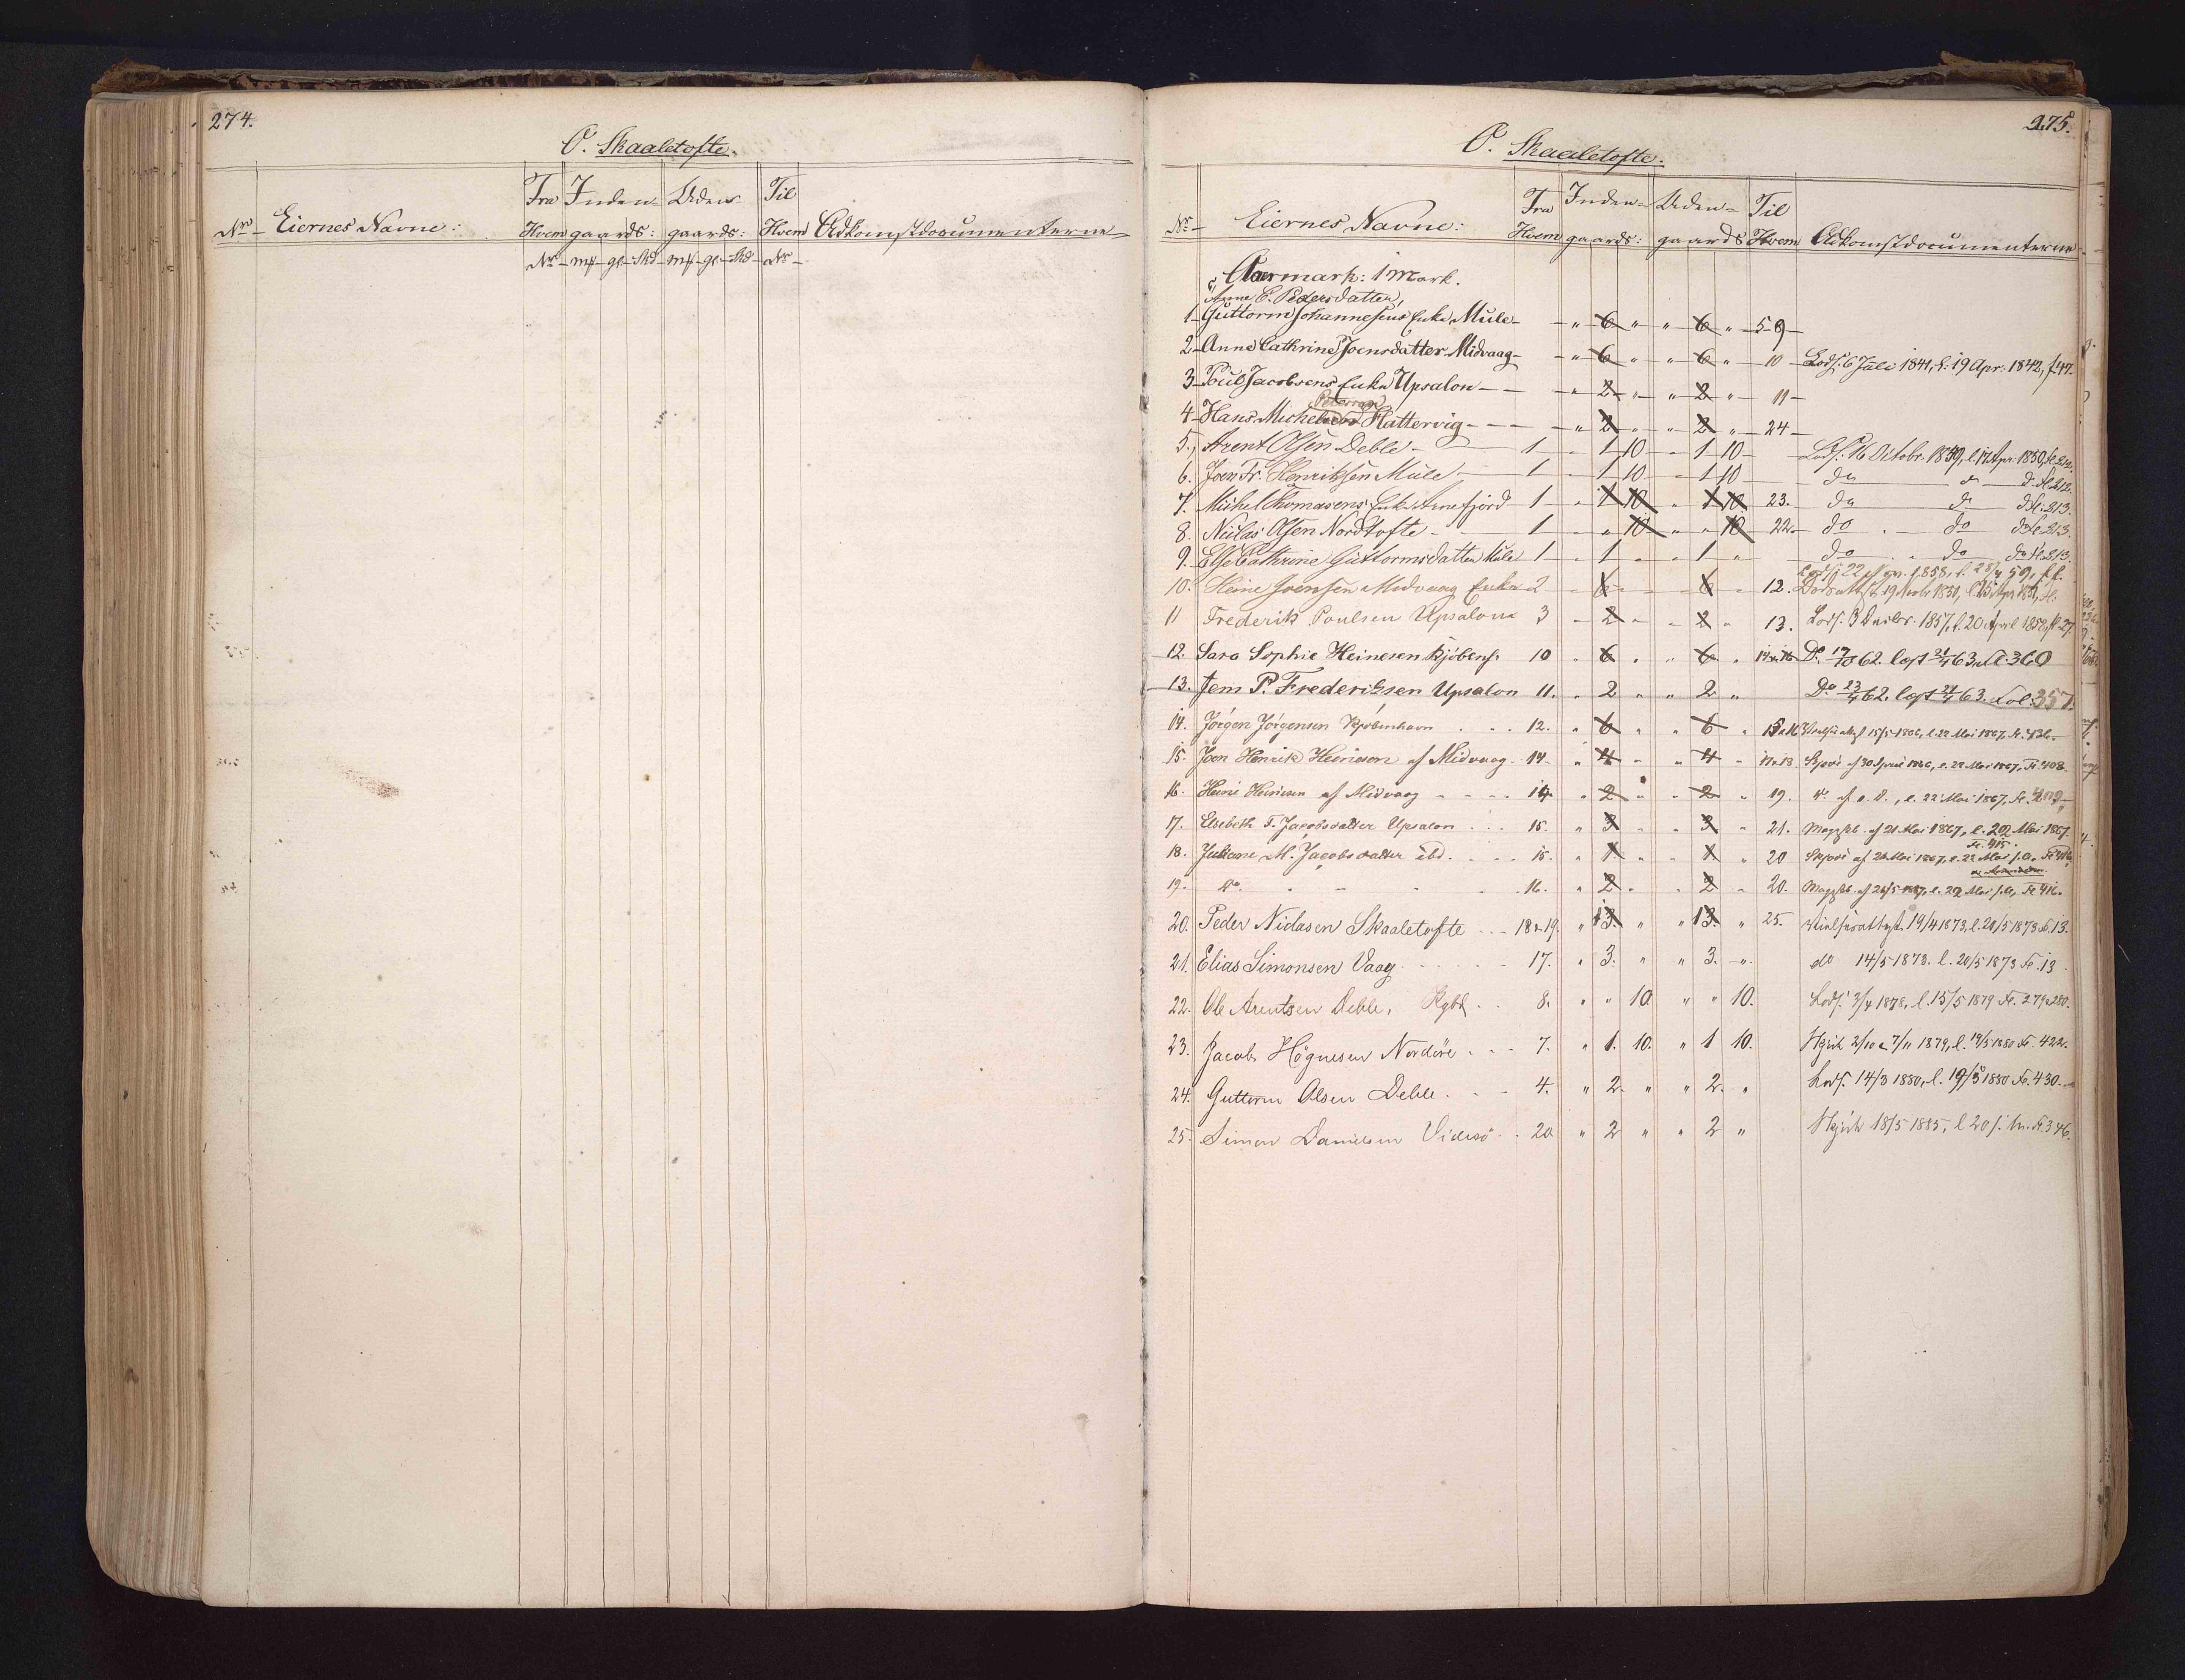 274.
O. Skaaletofte.
Nr Eiernes Navne: Fra Hvem Inden-gaards: Uden-gaards: Til Hvem Adkomstdocumenterne
Nr mk gl. Skd mk gl. Skd Nr
275.
O. Skaaletofte.
Nr Eiernes Navne: Fra Hvem Inden-gaards: Uden-gaards Til Hvem Adkomstdocumenterne
1 Mark.
Anne C. Pedersdatter,
1 Guttorm Johannesens Enke Mule " 6 " " 6 " 5-9
2 Anne Cathrine Joensdatter Midvaag " 6 " " 6 " 10 Lods. 6 Juli 1841, l: 19 Apr: 1842, f 47.
3 Poul Jacobsens Enke Upsalon " 2 " " 2 " 11
Petersen
4 Hans Michelsens Hattervig " 2 " " 2 " 24
5. Arent Olsen Deble 1 " 1 10 " 1 10 Lods: 16 Octobr. 1849, l. 17 Apr. 1850, fl. 212.
6. Joen Fr. Henriksen Mule 1 " 1 10 " 1 10 do do do fl. 212.
7. Michel Thomasens Enke Arnefjord 1 " 1 10 " 1 10 23. do do do fl. 213.
8. Niclas Olsen Nordtofte 1 " " 10 " " 10 22. do do do fl. 213.
9. Else Cathrine Guttormsdatter Mule 1 " 1 " " 1 " do do do fl. 213.
10. Heine Joensen Midvaag Enke 2 " 6 " " 6 " 12.
11 Frederik Poulsen Upsalon 3 " 2 " " 2 " 13. Lods. 3 Decbr. 1857, l. 20 April 1858, fl. 27.
12. Sara Sophie Heinesen Kjöbenh. 10 " 6 " " 6 " 14 Do 62. læst 21/4 63. Fl: 360
13. Jem P. Frederiksen Upsalon 11. " 2 " " 2 " Do 23/4 62. læst 21/4 63. Fol: 357.
14. Jörgen Jörgensen Kjöbenhavn 12. " 6 " " 6 " 15 & 16 15/5 1866, l. 22 Mai 1867, Fl. 436.
15. Joen Henrik Heinesen af Midvaag 14. " 4 " " 4 " 17 & 18. Skjøde af 30 April 1866, l. 22 Mai 1867, Fl. 408.
16. Heine Heinesen af Midvaag 14 " 2 " " 2 " 19. do af s. D., l. 22 Mai 1867, Fl. 409
17. Elsebeth F. Jacobsdatter Upsalon 15. " 3 " " 3 " 21. Magsk. af 21 Mai 1867, l. 22 Mai 1867.
Fl. 415.
18. Juliane M. Jacobsdatter ibd. 15. " 1 " " 1 " 20 Skjøde af 21 Mai 1867, l. 22 Mai s. A., Fl. 416
19. do 16. " 2 " " 2 " 20. Magsk. af 21/5 1867, l. 22 Mai s. A, Fl 416.
20. Peder Niclasen Skaaletofte 18 & 19. " 3. " " 3. " 25. Vielsesattest 19/4 1873, l. 20/5 1873 Fl. 13.
21. Elias Simonsen Vaag 17. " 3. " " 3. " do 14/5 1873. l. 20/5 1873 Fl. 13.
22. Ole Arentsen Deble, 8. " " 10 " " 10. Lods. 3/4 1878, l. 15/5 1879 Fl. 279 & 280.
23. Jacob Högnesen Nordöre 7. " 1. 10. " 1 10. Skjøde 2/10 & 7/11 1879, l. 19/5 1880 Fl. 422.
24. Guttorm Olsen Deble. 4. " 2. " " 2. " Lods. 14/3 1880, l. 19/5 1880 Fl. 430.
25. Simon Danielsen Videreø 20 " 2 " " 2 " Skjøde 18/5 1885, l 20 s. M. Fl. 346.